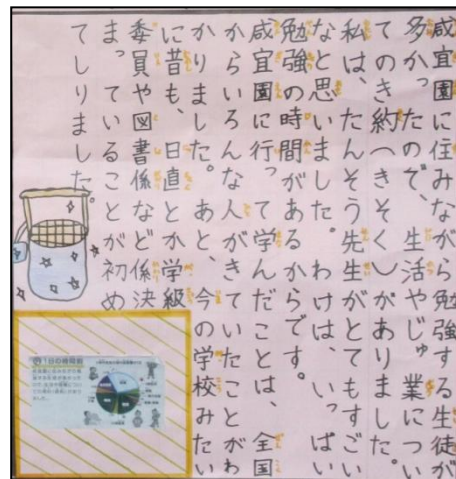 咸宜園に住みながら勉強する生徒が
多かったので、生活やじゅ業につい
てのき約(きそく)がありました。
私は、たんそう先生がとてもすごい
なと思いました。わけは、いっぱい
勉強の時間があるからです。
咸宜園に行って学んだことは、全国
からいろんな人がきていたことがわ
かりました。あと、今の学校みたい
に昔も、日直とか学級
委員や図書係など係決
まっていることが初め
てしりました。
1日の時間割